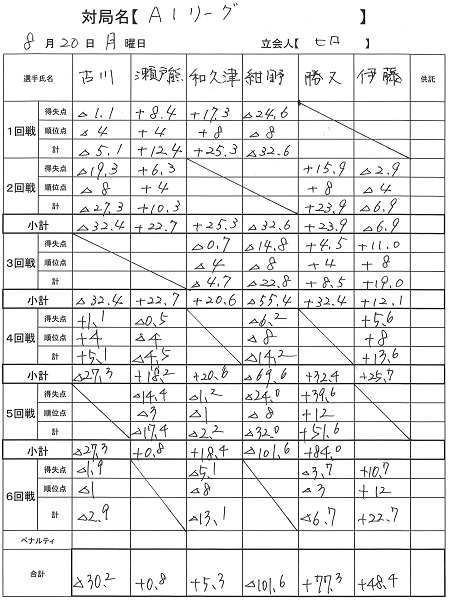 対局名【 A1リーグ 】
8月20日 月曜日 立会人【 】
選手氏名 古川 瀬戸熊 和久津 紺野 勝又 伊藤 供託
1回戦
得失点 △1.1 +8.4 +17.3 △24.6
順位点 △4 +4 +8 △8
計 △5.1 +12.4 +25.3 △32.6
2回戦
得失点 △19.3 +6.3 +15.9 △2.9
順位点 △8 +4 +8 △4
計 △27.3 +10.3 +23.9 △6.9
小計 △32.4 +22.7 +25.3 △32.6 +23.9 △6.9
3回戦
得失点 △0.7 △14.8 +4.5 +11.0
順位点 △4 △8 +4 +8
計 △4.7 △22.8 +8.5 +19.0
小計 △32.4 +22.7 +20.6 △55.4 +32.4 +12.1
4回戦
得失点 +1.1 △0.5 △6.2 +5.6
順位点 +4 △4 △8 +8
計 +5.1 △4.5 △14.2 +13.6
小計 △27.3 +18.2 +20.6 △69.6 +32.4 +25.7
5回戦
得失点 △14.4 △1.2 △24.0 +39.6
順位点 △3 △1 △8 +12
計 △17.4 △2.2 △32.0 +51.6
小計 △27.3 +0.8 +18.4 △101.6 +84.0
6回戦
得失点 △1.9 △5.1 △3.7 +10.7
順位点 △1 △8 △3 +12
計 △2.9 △13.1 △6.7 +22.7
ペナルティ
合計 △30.2 +0.8 +5.3 △101.6 +77.3 +48.4